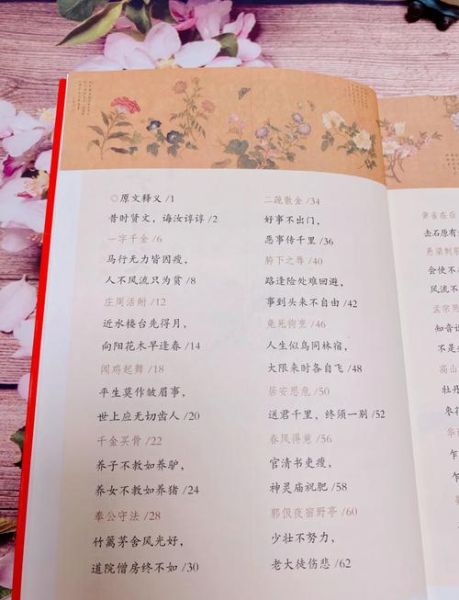 ◎原文释义 /1
昔时贤文，诲汝谆谆 /2
一字千金 /6
马行无力皆因瘦，
人不风流只为贫 /8
庄周活鲋 /12
近水楼台先得月，
向阳花木早逢春 /14
闻鸡起舞 /18
平生莫作皱眉事，
世上应无切齿人 /20
千金买骨 /22
养子不教如养驴，
养女不教如养猪 /24
奉公守法 /28
竹篱茅舍风光好，
道院僧房终不如 /30
二疏散金 /34
好事不出门，
恶事传千里 /36
胯下之辱 /40
路逢险处难回避，
事到头来不自由 /42
兔死狗烹 /46
人生似鸟同林宿，
大限来时各自飞 /48
居安思危 /50
送君千里，终须一别 /52
春风得意 /56
官清书吏瘦，
神灵庙祝肥 /58
郭伋夜宿野亭 /60
少壮不努力，
老大徒伤悲 /62
去石原有
会使不
风流不
孟宗哭
知音说
不是
高山
牡丹
枣花